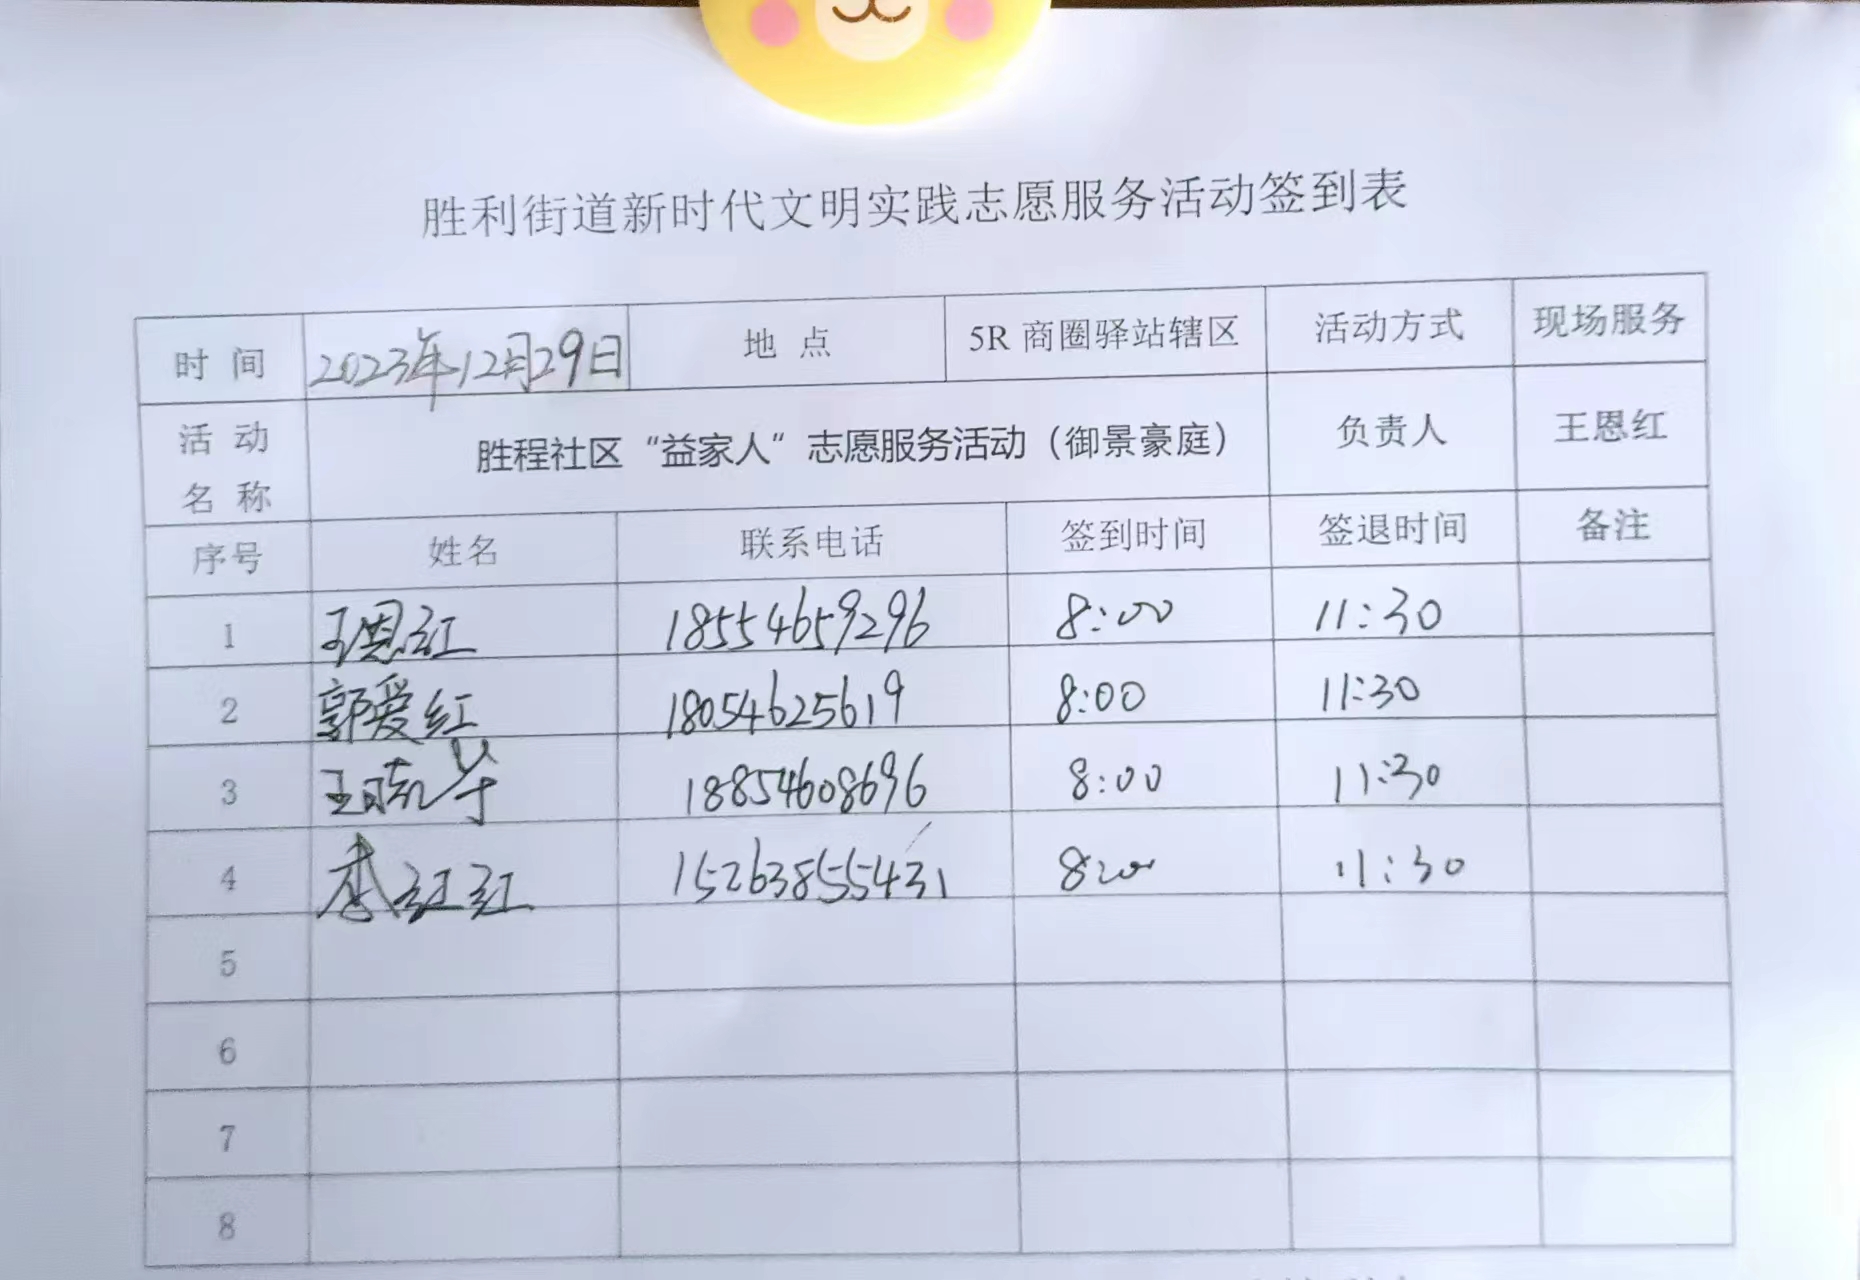 胜利街道新时代文明实践志愿服务活动签到表
时 间 2023年12月29日 地 点 5R 商圈驿站辖区 活动方式 现场服务
活 动 名 称 胜程社区“益家人”志愿服务活动（御景豪庭） 负责人 王恩红
序号 姓名 联系电话 签到时间 签退时间 备注
1 王恩红 18554659296 8:00 11:30
2 郭爱红 18054625619 8:00 11:30
3 18854608696 8:00 11:30
4 李红红 15263855431 8:00 11:30
5
6
7
8